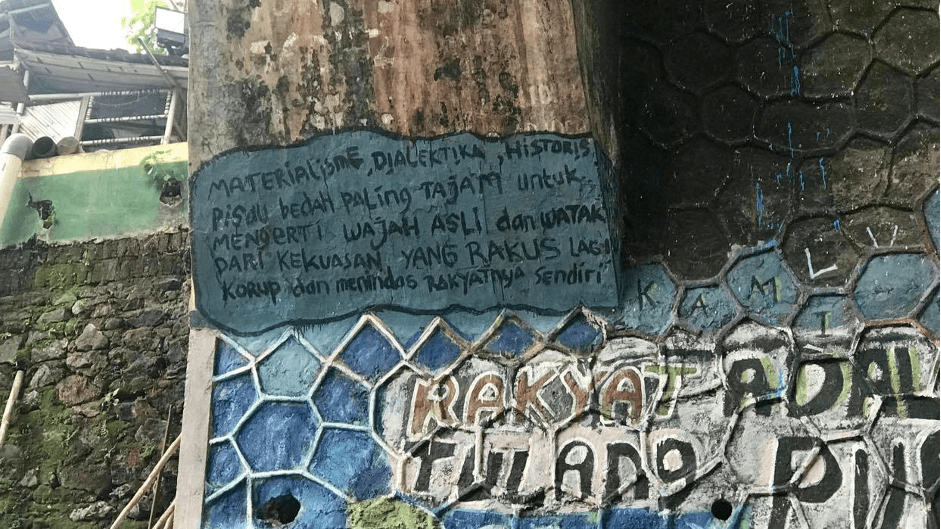 MATERIALISME, DIALEKTIKA, HISTORIS,
PISAU bedah PALING TAJAM untuk
MENGERTI WAJAH ASLI dan WATAK
DARI KEKUASAN YANG RAKUS LAGI
KORUP dan menindas RAKYATNYA SENDIRI
KAMI
RAKYAT ADAL
TULANG